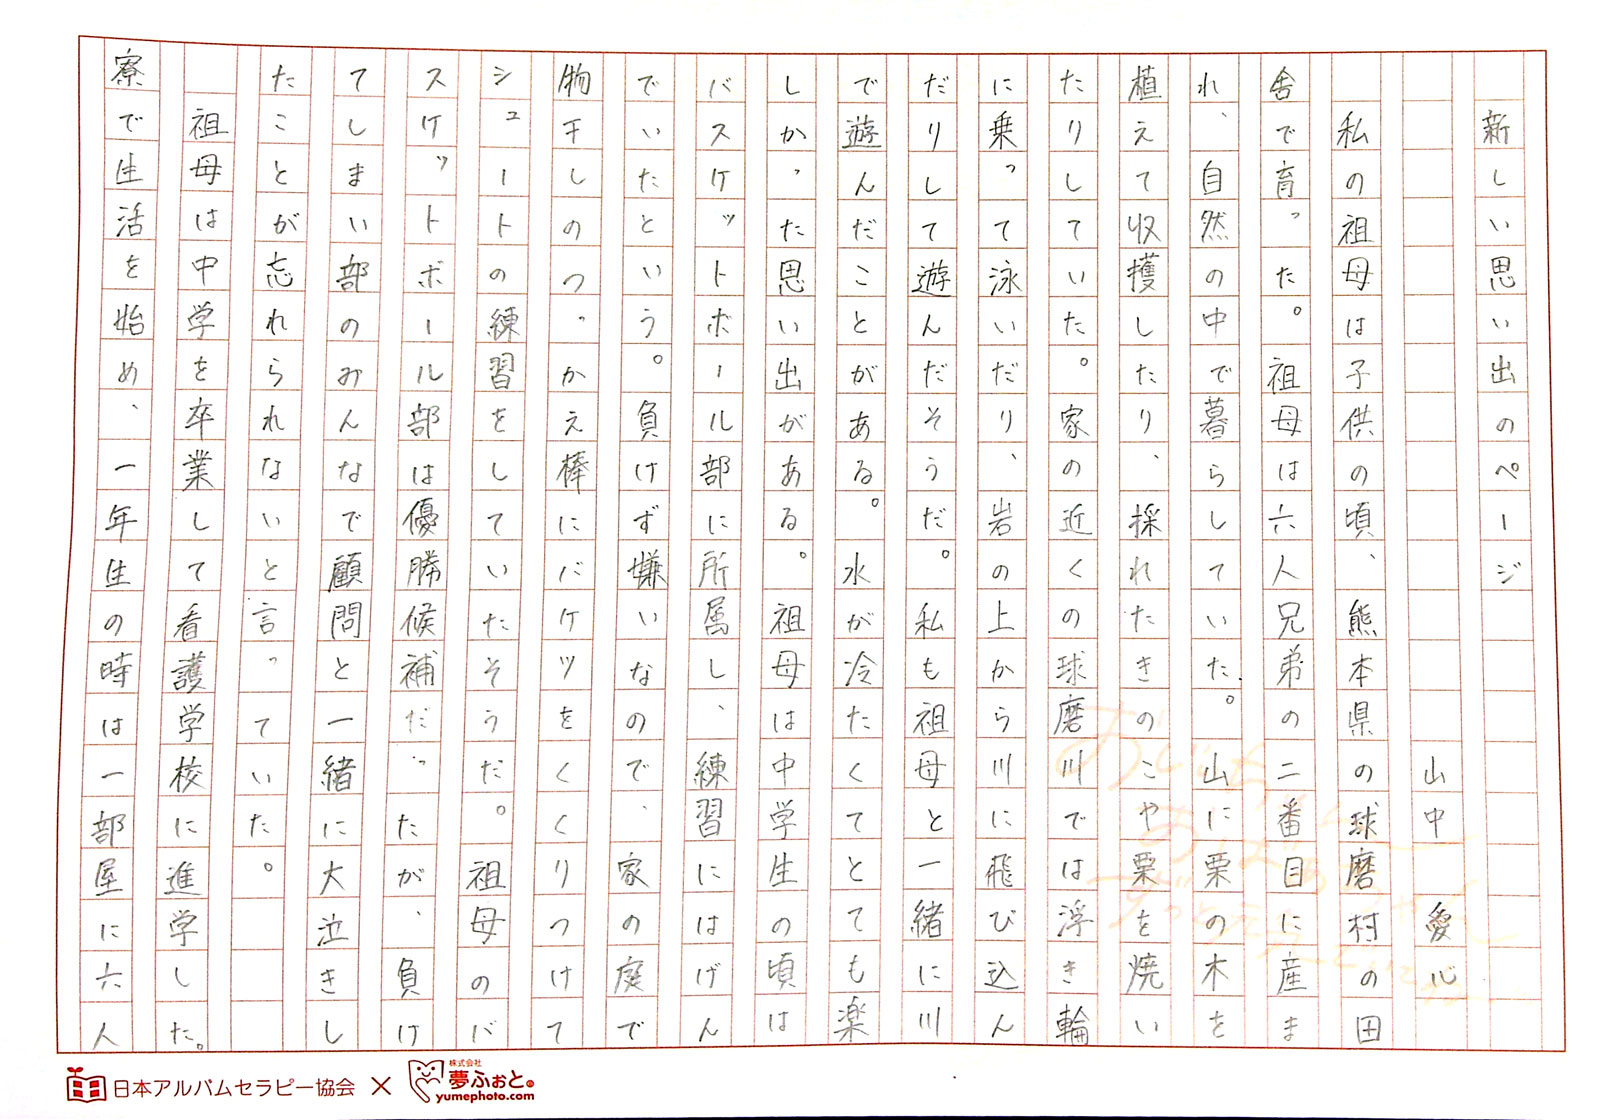 新しい思い出のページ
山中愛心
私の祖母は子供の頃、熊本県の球磨村の田
舎で育った。祖母は六人兄弟の二番目に産ま
れ、自然の中で暮らしていた。山に栗の木を
植えて収獲したり、採れたきのこや栗を焼い
たりしていた。家の近くの球磨川では浮き輪
に乗って泳いだり、岩の上から川に飛び込ん
だりして遊んだそうだ。私も祖母と一緒に川
で遊んだことがある。水が冷たくてとても楽
しかった思い出がある。祖母は中学生の頃は
バスケットボール部に所属し、練習にはげん
でいたという。負けず嫌いなので、家の庭で
物干しのつっかえ棒にバケツをくくりつけて
シュートの練習をしていたそうだ。祖母のバ
スケットボール部は優勝候補だったが、負け
てしまい部のみんなで顧問と一緒に大泣きし
たことが忘れられれないと言っていた。
祖母は中学を卒業して看護学校に進学した。
寮で生活を始め、一年生の時は一部屋に六人
日本アルバムセラピー協会 × 株式会社 夢ふぉと。
yumephoto.com